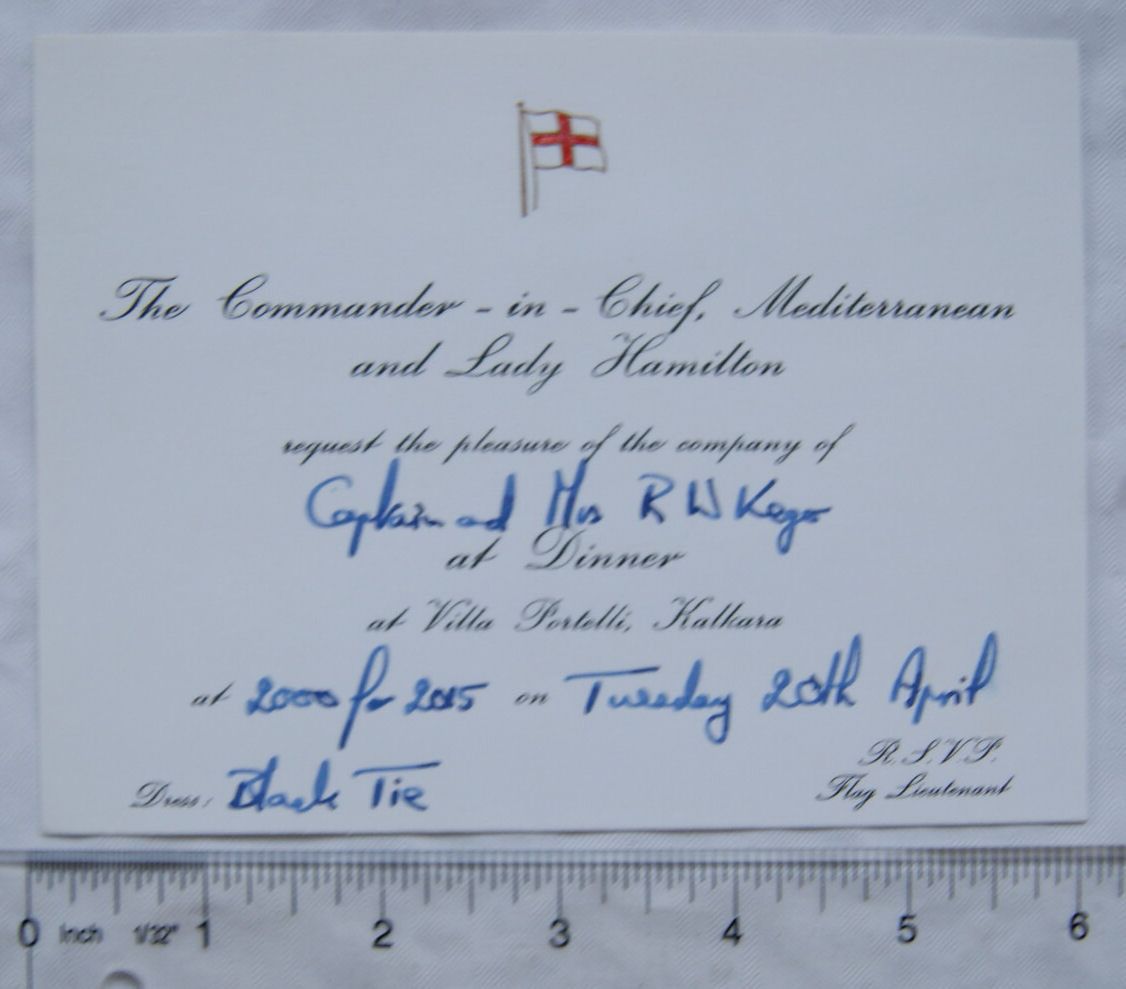 The Commander - in - Chief, Mediterranean
and Lady Hamilton
request the pleasure of the company of
Captain and Mrs R W Kegs
at Dinner
at Villa Portelli, Kalkara
at 2000 for 2015 on Tuesday 20th April
R.S.V.P.
Dress: Black Tie
Flag Lieutenant
0 Inch 1/32" 1 2 3 4 5 6